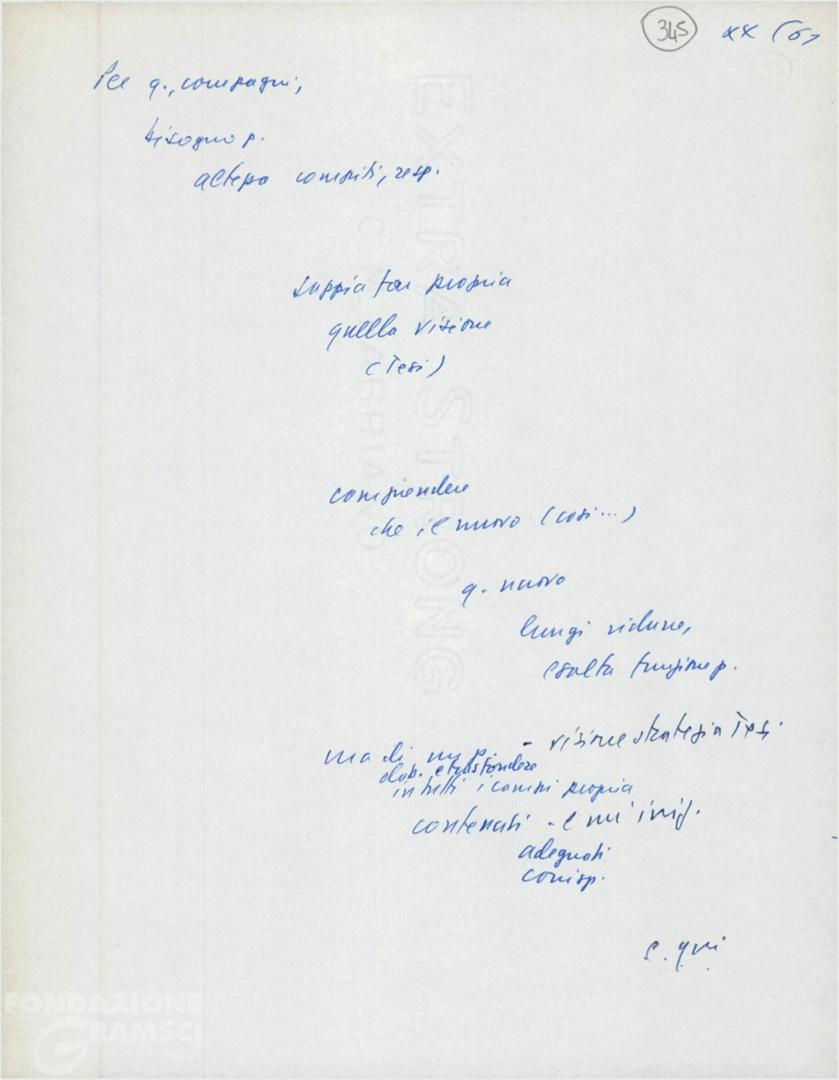 345 XX (6)
Per q., compagni,
bisogno p.
altezza compiti, resp.
sappia far propria
quella visione
(Tesi)
comprendere
che il nuovo (così...)
q. nuovo
lungi ridurre,
esalta funzione p.
ma di - visione strategia Tesi
elab. e trasfondere
in tutti i campi propria
contenuti - e
adeguati
corrisp.
e. qui
EXTRA STRONG
FONDAZIONE
GRAMSCI